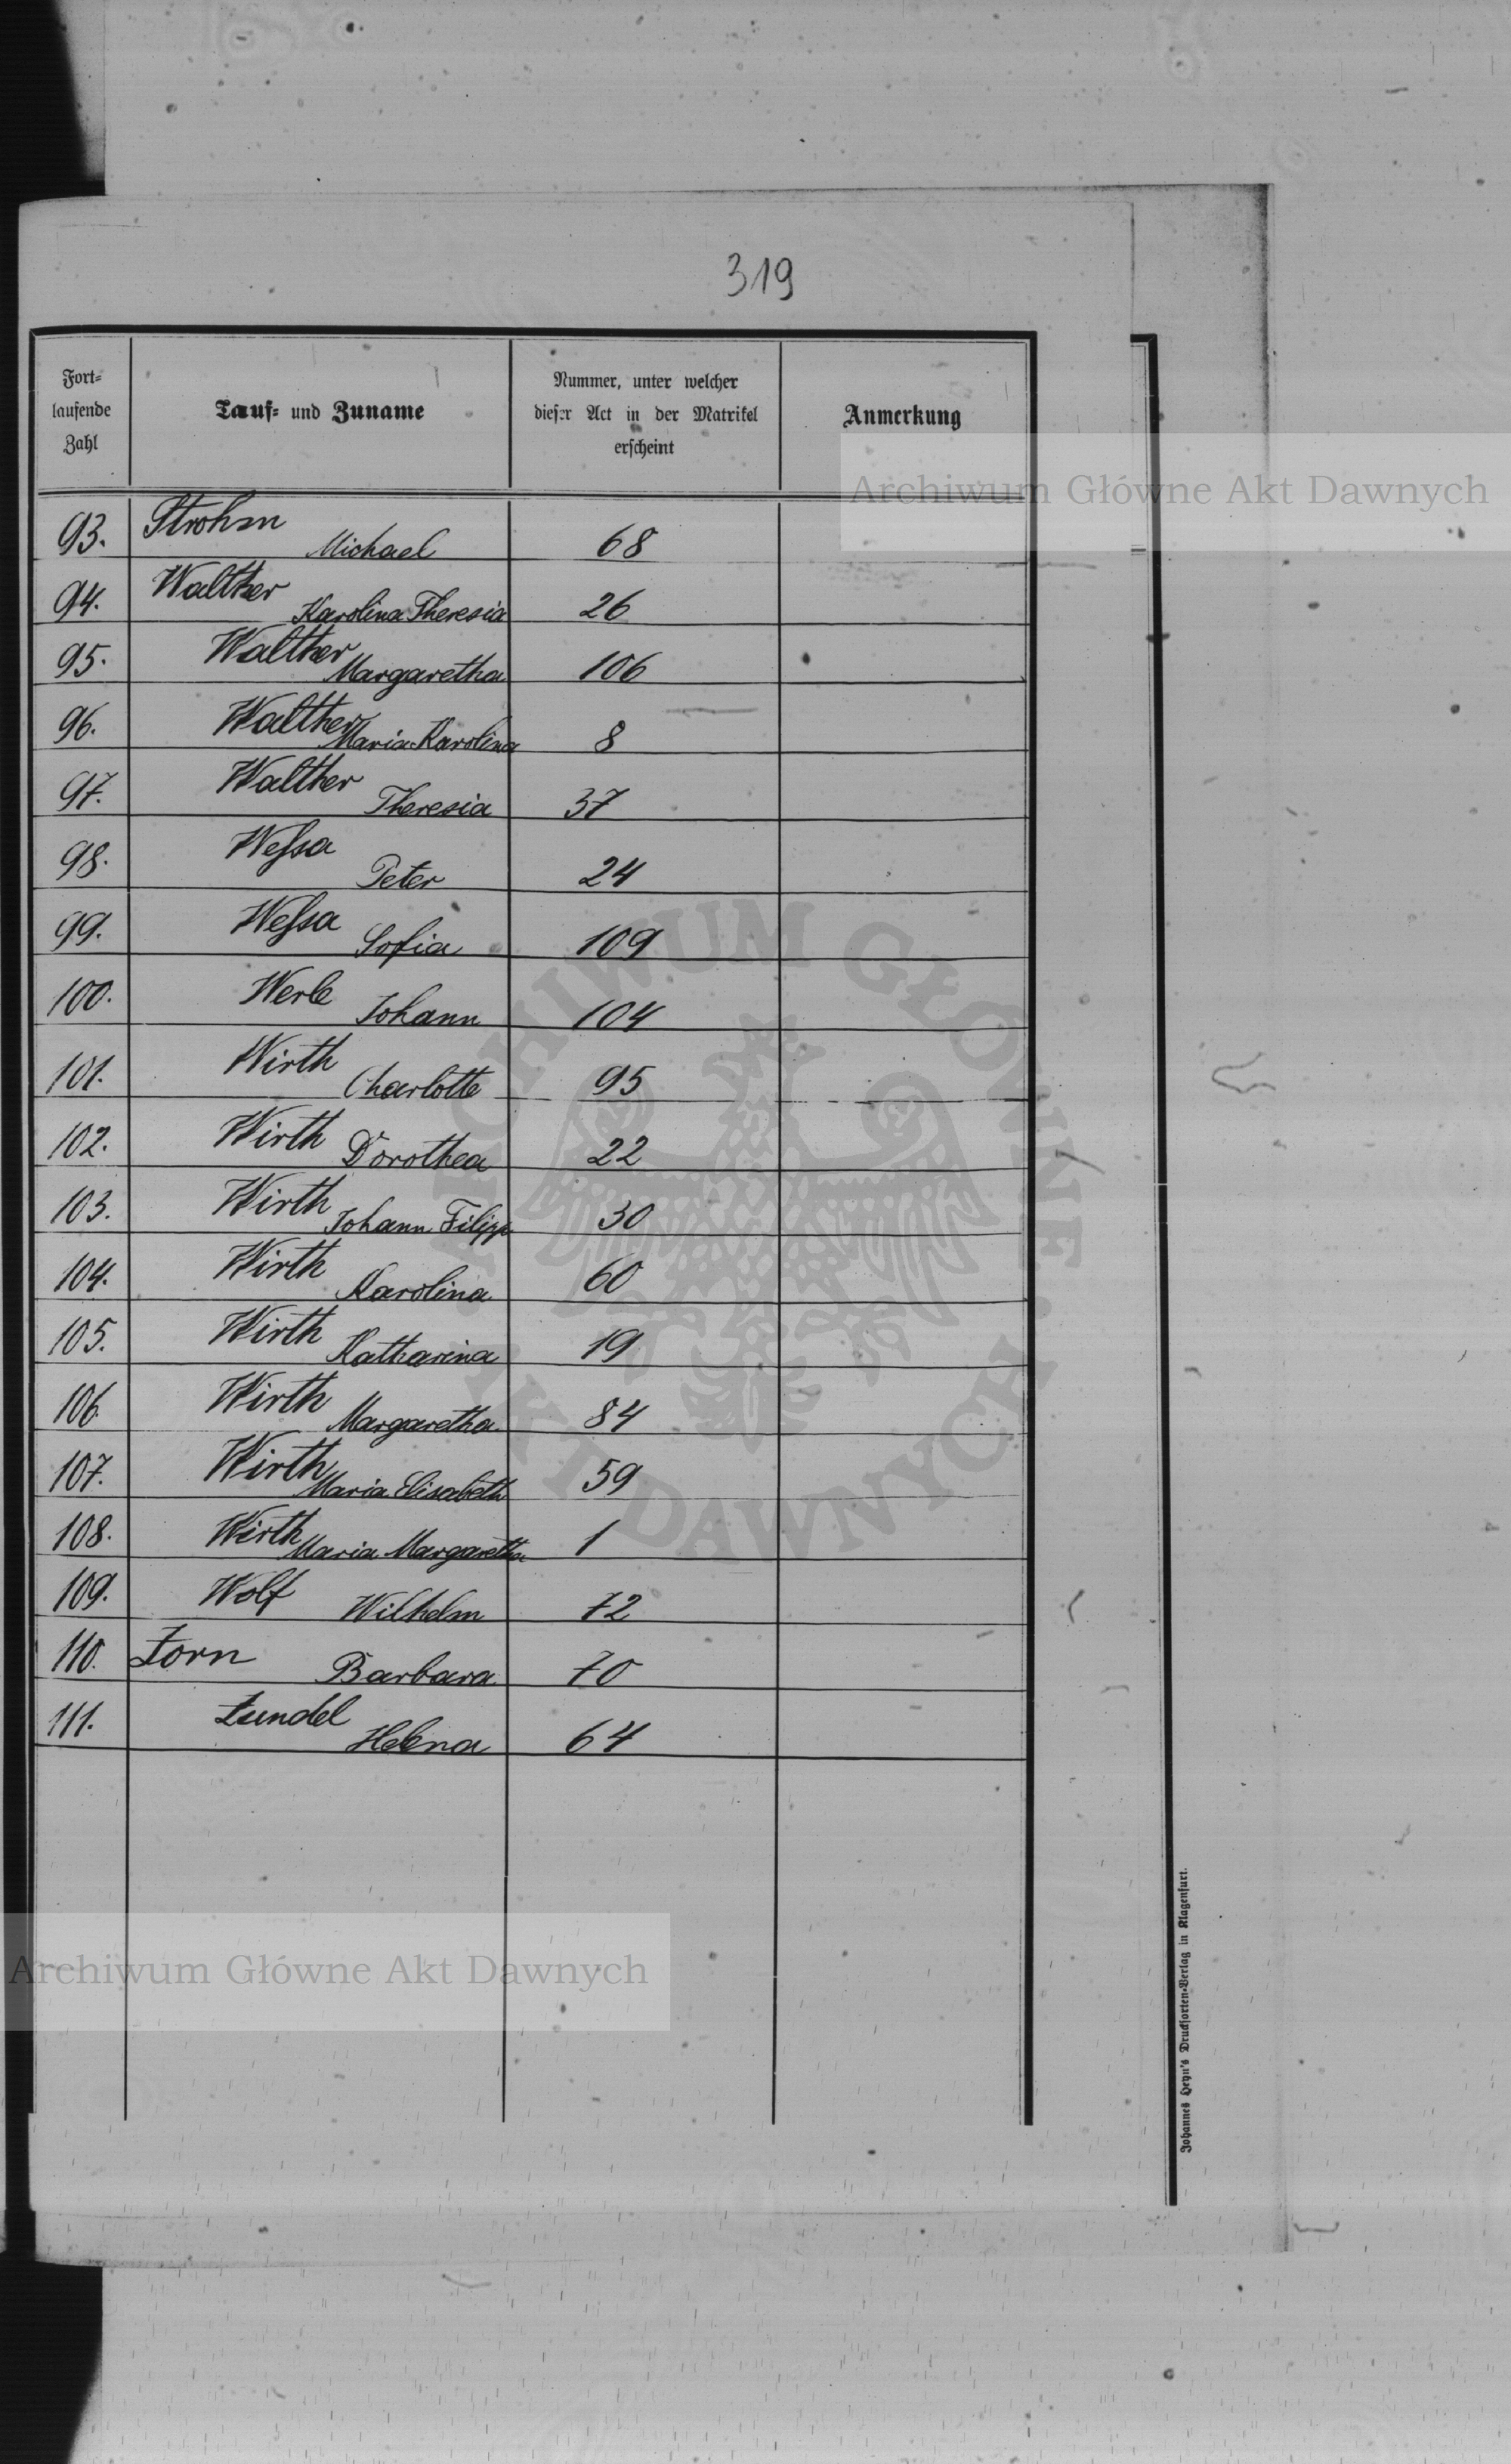 319
Fort-
laufende
Zahl
Tauf- und Zuname
Nummer, unter welcher
dieser Act in der Matrikel
erscheint
Anmerkung
Archiwum Główne Akt Dawnych
93. Strohm Michael 68
94. Walther Karolina Theresia 26
95. Walther Margaretha 106
96. Walther Maria Karolina 8
97. Walther Theresia 37
98. Weſsa Peter 24
99. Weſsa Sofia 109
100. Werle Johann 104
101. Wirth Charlotte 95
102. Wirth Dorothea 22
103. Wirth Johann Filipp 30
104. Wirth Karolina 60
105. Wirth Katharina 19
106. Wirth Margaretha 84
107. Wirth Maria Elisabeth 59
108. Wirth Maria Margaretha 1
109. Wolf Wilhelm 72
110. Zorn Barbara 70
111. Zundel Helena 64
ARCHIWUM GŁÓWNE • AKT DAWNYCH •
Archiwum Główne Akt Dawnych
Johannes Heyn's Drucksorten-Verlag in Klagenfurt.